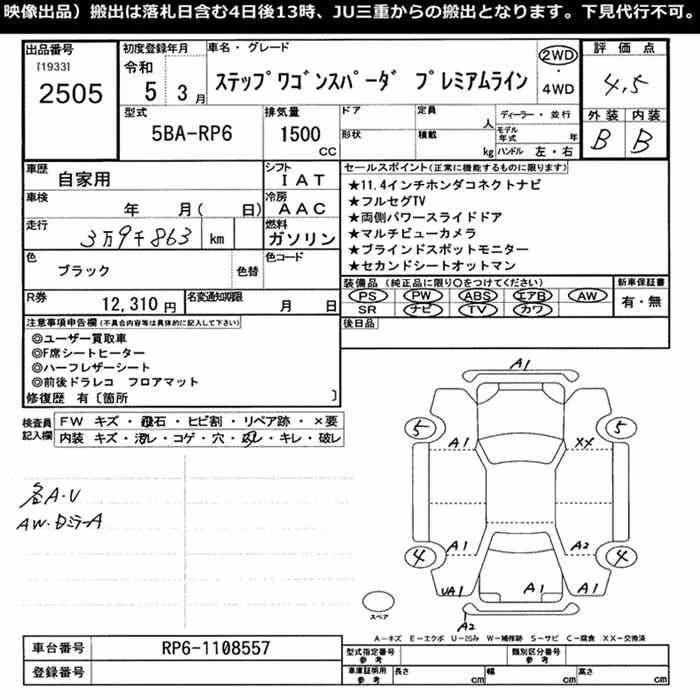 映像出品）搬出は落札日含む4日後13時、JU三重からの搬出となります。下見代行不可。
出品番号
[1933]
2505
初度登録年月
令和
5 3月
車名・グレード
ステップワゴンスパーダ プレミアムライン
2WD
・
4WD
評価点
4.5
外装 内装
B B
型式
5BA-RP6
排気量
1500
CC
ドア
形状
定員
人
積載
kg
ディーラー・並行
モデル年式 年
ハンドル 左・右
車歴
自家用
シフト
IAT
車検
年 月( 日)
冷房
AAC
走行
3万9千863 km
燃料
ガソリン
色
ブラック
色替
色コード
R券
12,310円
名変通知期限
月 日
セールスポイント(正常に機能するものに限ります)
★11.4インチホンダコネクトナビ
★フルセグTV
★両側パワースライドドア
★マルチビューカメラ
★ブラインドスポットモニター
★セカンドシートオットマン
装備品(純正品に限り○をつけてください)
PS PW ABS エアB AW
SR ナビ TV カワ
新車保証書
有・無
後日品
注意事項申告欄(不具合内容等は具体的に記入して下さい)
◎ユーザー買取車
◎F席シートヒーター
◎ハーフレザーシート
◎前後ドラレコ フロアマット
修復歴 有〔箇所 〕
検査員記入欄
FW キズ・飛石・ヒビ割・リペア跡・×要
内装 キズ・汚レ・コゲ・穴・凹レ・キレ・破レ
各A・U
AW・Dミラ-A
A1
5
5
A1
XX
A1
A2
4
4
UA1
A1
A1
A2
スペア
A－キズ E－エクボ U－凹み W－補修跡 S－サビ C－腐食 XX－交換済
車台番号
RP6-1108557
登録番号
型式指定番号
参考
類別区分番号
参考
車庫証明用
参考
長さ cm
幅 cm
高さ cm